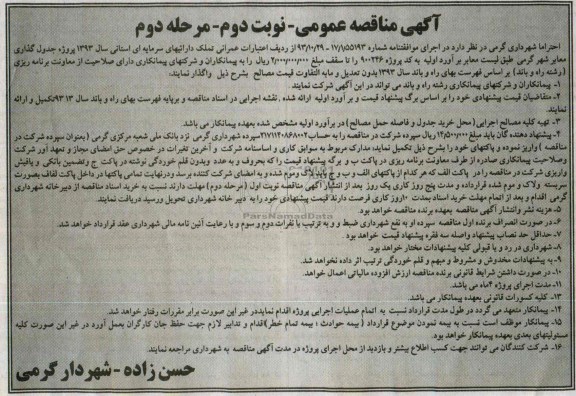 آگهی مناقصه عمومی - نوبت دوم - مرحله دوم
احتراما شهرداری گرمی در نظر دارد در اجرای موافقتنامه شماره ۱۷/۱/۵۵۱۹۳ - ۹۳/۱۰/۲۹ از ردیف اعتبارات عمرانی تملک دارائیهای سرمایه ای استانی سال ۱۳۹۳ پروژه جدول گذاری
معابر شهر گرمی طبق لیست معابر برآورد اولیه به کد پروژه ۹۰۰۲۴۶ را تا سقف مبلغ ۲/۰۰۰/۰۰۰/۰۰۰ ریال را به پیمانکاران و شرکتهای پیمانکاری دارای صلاحیت از معاونت برنامه ریزی
(رشته راه و باند) بر اساس فهرست بهای راه و باند سال ۱۳۹۳ بدون تعدیل و مابه التفاوت قیمت مصالح بشرح ذیل واگذار نمایند.
۱- پیمانکاران و شرکتهای پیمانکاری رشته راه و باند می تواند در این آگهی شرکت نمایند.
۲- متقاضیان قیمت پیشنهادی خود را بر اساس برگ پیشنهاد قیمت و بر آورد اولیه ارائه شده , نقشه اجرایی در اسناد مناقصه و برپایه فهرست بهای راه و باند سال ۱۳۹۳ تکمیل و ارائه
نمایند.
۳- تهیه کلیه مصالح اجرایی (محل خرید جدول و فاصله حمل مصالح) در برآورد اولیه مشخص شده بعهده پیمانکار می باشد.
۴- پیشنهاد دهنده گان باید مبلغ ۱۴/۵۰۰/۰۰۰ ریال سپرده شرکت در مناقصه را به حساب ۲۱۷۱۱۴۰۸۶۸۰۰۲ سپرده شهرداری گرمی نزد بانک ملی شعبه مرکزی گرمی (بعنوان سپرده شرکت در
مناقصه) واریز نموده و پاکتهای خود را بشرح ذیل تکمیل نماید، مدارک مربوط به سوابق کاری و اساسنامه شرکت و آخرین تغیرات در خصوص حق امضای مجاز و تعهد آور شرکت
وصلاحیت پیمانکاری صادره از طرف معاونت برنامه ریزی در پاکت ب و برگه پیشنهاد قیمت را که بحروف و به عدد وبدون قلم خوردگی نوشته در پاکت ج وتضمین بانکی و یافیش
واریزی شرکت در مناقصه را در پاکت الف که هر کدام از پاکتهای الف و ب و ج بایدلاک وموم شده و به امضای شرکت کننده برسد ودرنهایت تمامی پاکتها در داخل پاکت لفاف بصورت
سربسته ولاک و موم شده قرارداده و مدت پنج روز کاری یک روز بعد از انتشار آگهی مناقصه نوبت اول (مرحله دوم) مهلت دارند نسبت به خرید اسناد مناقصه از دبیرخانه شهرداری
گرمی اقدام و بعد از اتمام مهلت خرید اسناد بمدت ۱۰روز کاری فرصت دارند قیمت پیشنهادی خود را به دبیر خانه شهرداری تحویل ورسید دریافت نمایند.
۵- هزینه نشر وانتشار آگهی مناقصه بعهده برنده مناقصه خواهد بود.
۶- در صورت انصراف برنده اول مناقصه سپرده او به نفع شهرداری ضبط و و به ترتیب با نفرات دوم و سوم و با رعایت آئین نامه مالی شهرداری عقد قرارداد خواهد شد.
۷- حداقل حد نصاب پیشنهاد واصله سه فقره پیشنهاد قیمت خواهد بود.
۸- شهرداری در رد و یا قبولی کلیه پیشنهادات مختار خواهد بود.
۹- به پیشنهادات مخدوش و مشروط و مبهم و قلم خوردگی ترتیب اثر داده نخواهد شد.
۱۰- در صورت داشتن شرایط قانونی برنده مناقصه ارزش افزوده مالیاتی اعمال خواهد.
۱۱- مدت اجرای پروژه ۴ماه می باشد.
۱۳- کلیه کسورات قانونی بعهده پیمانکار می باشد.
۱۴- پیمانکار متعهد می گردد در طول مدت قرارداد نسبت به اتمام عملیات اجرایی پروژه اقدام نمایددر غیر این صورت برابر مقررات رفتار خواهد شد.
۱۵- پیمانکار موظف است نسبت به بیمه نمودن موضوع قرارداد (بیمه حوادث، بیمه تمام خطر)اقدام و تدابیر لازم جهت حفظ جان کارگران بعمل آورد در غیر این صورت کلیه
مسئولیتهای بعدی بعهده پیمانکار خواهد بود.
۱۶- شرکت کنندگان می توانند جهت کسب اطلاع بیشتر و بازدید از محل اجرای پروژه در مدت آگهی مناقصه به شهرداری مراجعه نمایند.
حسن زاده - شهردار گرمی
ParsNamadData